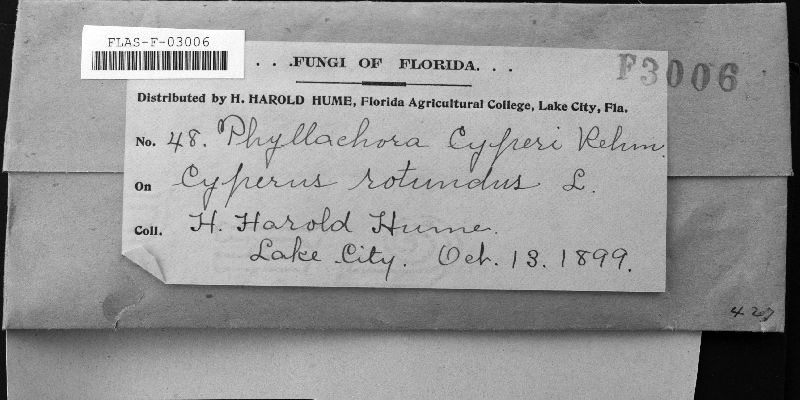 FLAS-F-03006
. . .FUNGI OF FLORIDA. . .
F3006
Distributed by H. HAROLD HUME, Florida Agricultural College, Lake City, Fla.
No. 48. Phyllachora Cyperi Rehm.
On Cyperus rotundus L.
Coll. H. Harold Hume.
Lake City. Oct. 13. 1899.
427